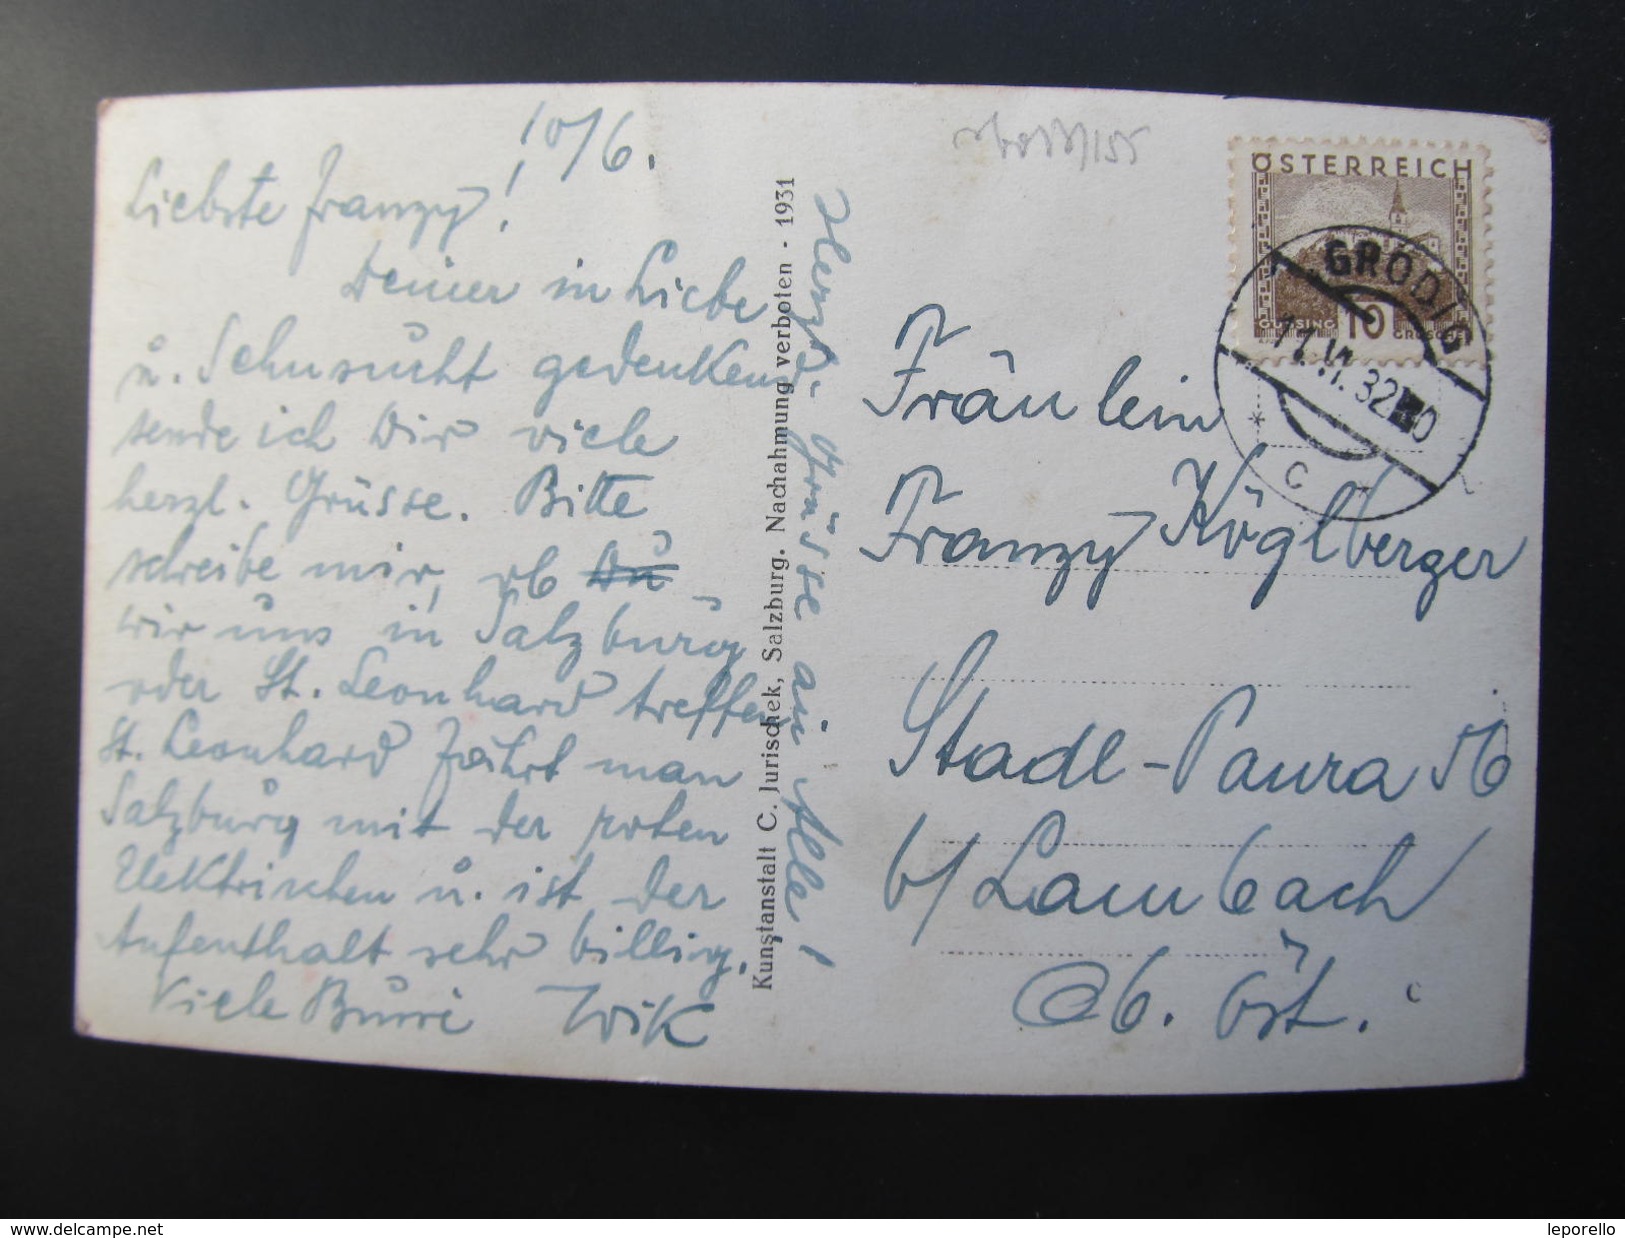 10/6.
Liebste Franzy!
Deiner in Liebe
u. Sehnsucht gedenkend
sende ich Dir viele
herzl. Grüsse. Bitte
schreibe mir, ob Du
wir uns in Salzburg
oder St. Leonhard treffen
St. Leonhard fährt man
Salzburg mit der roten
Elektrischen u. ist der
Aufenthalt sehr billig.
Viele
Herzl. Grüsse an Alle!
Kunstanstalt C. Jurischek, Salzburg. Nachahmung verboten - 1931
ÖSTERREICH
GÜSSING 10 GROSCHEN
GRÖDIG
11.VI.32
* C *
Fräulein
Franzy Köglberger
Stadl-Paura 56
b/Lambach
Ob. Öst.
www.delcampe.net
leporello